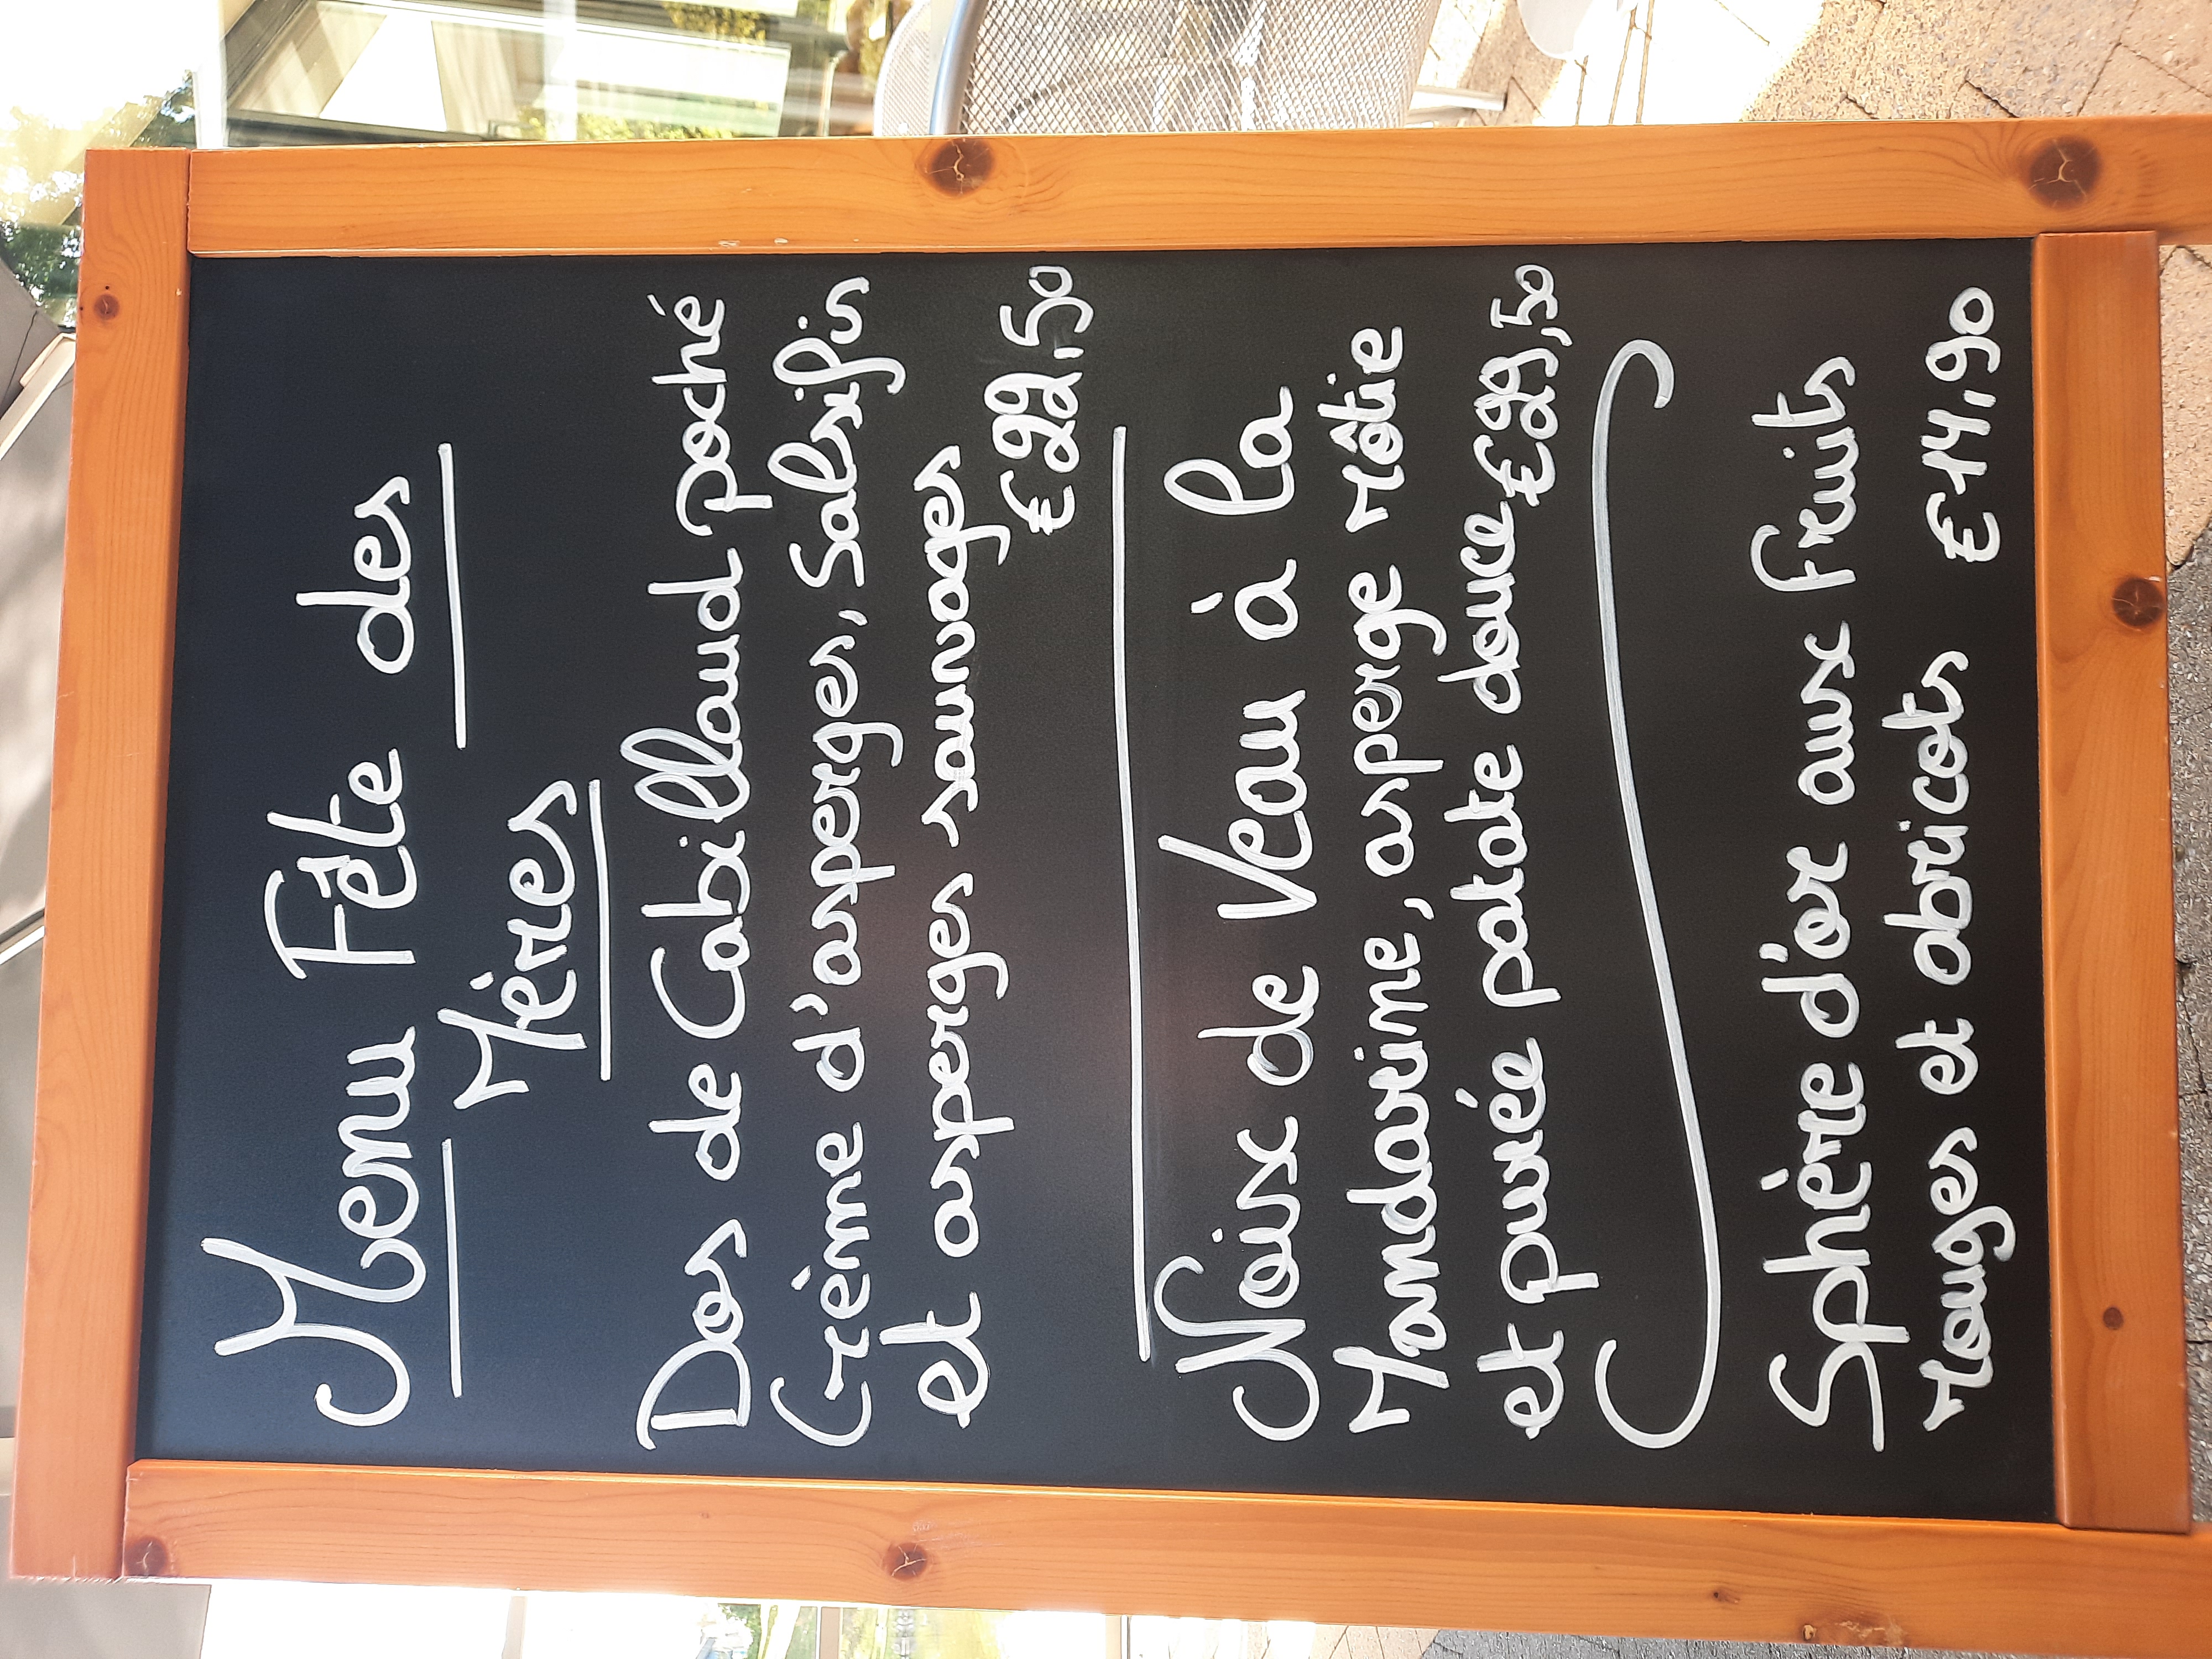 Menu Fête des
Mères
Dos de Cabillaud poché
Crème d'asperges, Salsifis
et asperges sauvages
€22,50
Noix de Veau à la
Mandarine, asperge rôtie
et purée patate douce €29,50
Sphère d'or aux fruits
rouges et abricots €14,90